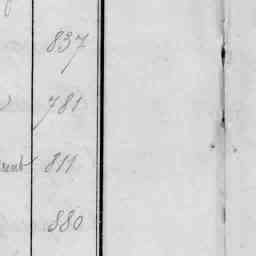 837
781
811
880